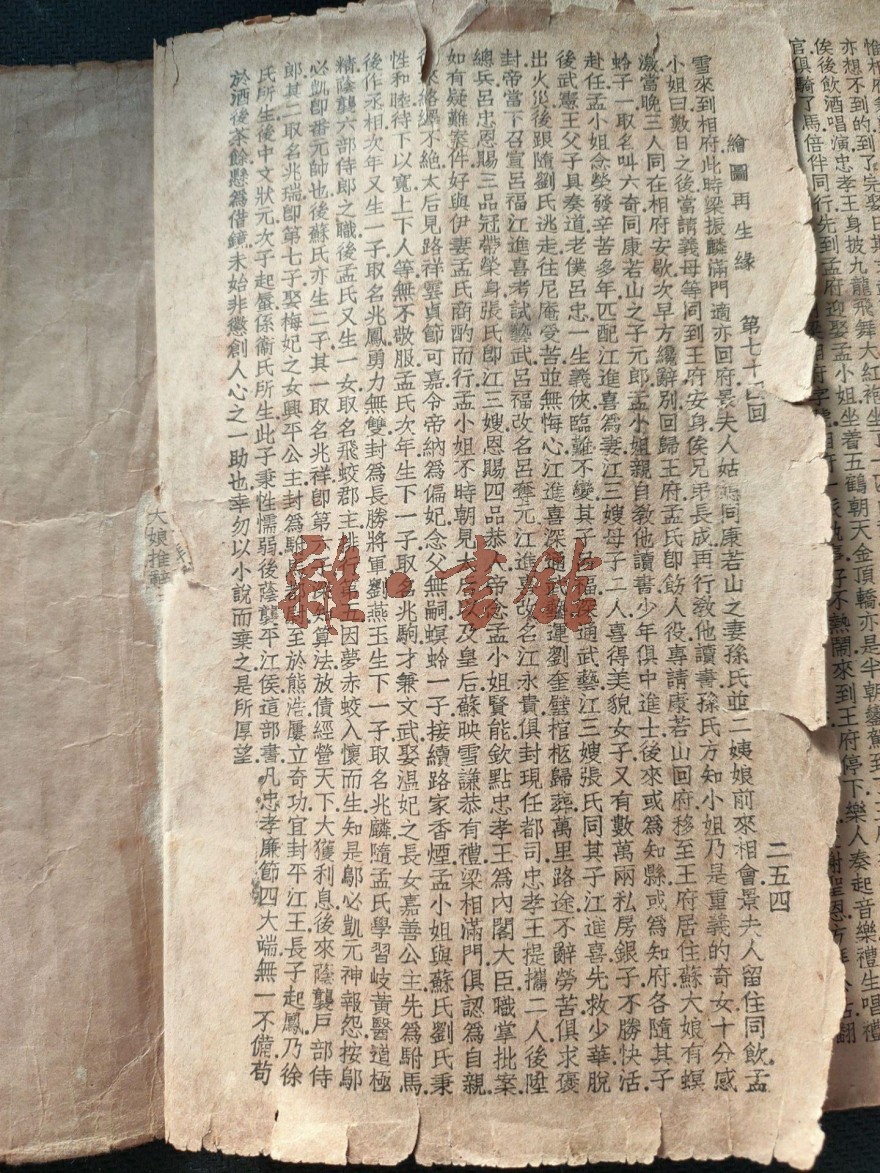 繪圖再生緣　第七十四回　二五四
雪來到相府此時梁振麟滿門適亦回府景夫人姑媳同康若山之妻孫氏並二姨娘前來相會景夫人留住同飲孟
小姐曰數日之後當請義母等同到王府安身俟兄弟長成再行教他讀書孫氏方知小姐乃是重義的奇女十分感
激當晚三人同在相府安歇次早方纔辭別回歸王府孟氏卽飭人役專請康若山回府移至王府居住蘇大娘有螟
蛉子一取名叫六奇同康若山之子元郎孟小姐親自教他讀書少年俱中進士後來或爲知縣或爲知府各隨其子
赴任孟小姐念榮發辛苦多年匹配江進喜爲妻江三嫂母子二人喜得美貌女子又有數萬兩私房銀子不勝快活
後武憲王父子具奏道老僕呂忠一生義俠臨難不變其子呂福 通武藝江三嫂張氏同其子江進喜先救少華脫
出火災後跟隨劉氏逃走往尼庵受苦並無悔心江進喜深通武藝運劉奎璧棺柩歸葬萬里路途不辭勞苦俱求褒
封帝當下召宣呂福江進喜考試藝武呂福改名呂奪元江進喜改名江永貴俱封現任都司忠孝王提攜二人後陞
總兵呂忠恩賜三品冠帶榮身張氏卽江三嫂恩賜四品恭人帝念孟小姐賢能欽點忠孝王爲內閣大臣職掌批案
如有疑難案件好與伊妻孟氏商酌而行孟小姐不時朝見太后以及皇后蘇映雪謙恭有禮梁相滿門俱認爲自親
來絡繹不絶太后見路祥雲貞節可嘉令帝納爲偏妃念父無嗣螟蛉一子接續路家香煙孟小姐與蘇氏劉氏秉
性和睦待下以寬上下人等無不敬服孟氏次年生下一子取名兆駒才兼文武娶温妃之長女嘉善公主先爲駙馬
後作丞相次年又生一子取名兆鳳勇力無雙封爲長勝將軍劉燕玉生下一子取名兆麟隨孟氏學習岐黃醫道極
精蔭襲六部侍郎之職後孟氏又生一女取名飛蛟郡主排行第五因夢赤蛟入懷而生知是鄔必凱元神報怨按鄔
必凱卽番元帥也後蘇氏亦生二子其一取名兆祥卽第六子 知算法放債經營天下大獲利息後來蔭襲戶部侍
郎其二取名兆瑞卽第七子娶梅妃之女興平公主封爲駙馬 至於熊浩屢立奇功宜封平江王長子起鳳乃徐
氏所生後中文狀元次子起蜃係衞氏所生此子秉性懦弱後蔭襲平江侯這部書凡忠孝廉節四大端無一不備苟
於酒後茶餘懸爲借鏡未始非懲創人心之一助也幸勿以小說而棄之是所厚望
大娘推辭
亦想不到的到了完娶日期
俟後飲酒唱演忠孝王身披九龍飛舞大紅袍坐
官俱騎了馬倍伴同行先到孟府迎娶孟小姐坐着五鶴朝天金頂轎亦是半朝鑾駕到
不熱鬧來到王府停下樂人奏起音樂禮生唱禮
謝聖恩
雜·書館